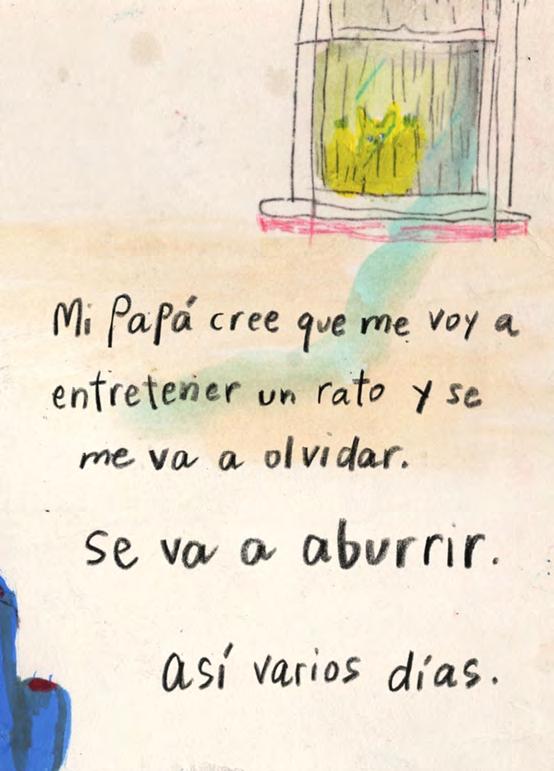 Mi Papá cree que me voy a
entretener un rato y se
me va a olvidar.
se va a aburrir.
así varios días.